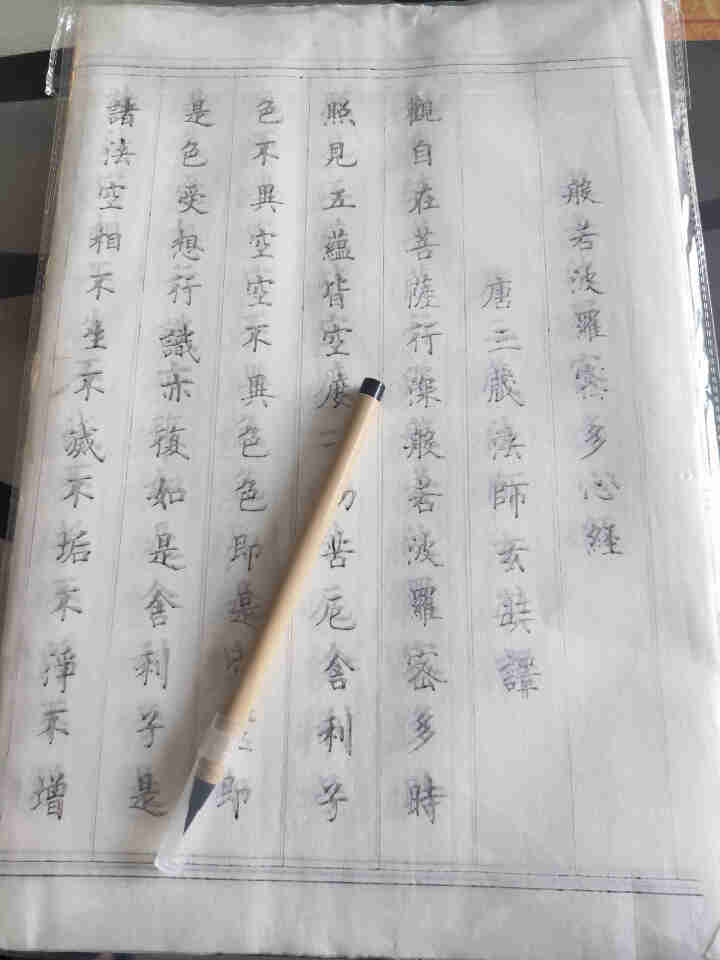 般若波羅密多心経
唐三藏法師玄奘譯
觀自在菩薩行深般若波羅密多時
照見五蘊皆空度一切苦厄舍利子
色不異空空不異色色即是空空即
是色受想行識亦復如是舍利子是
諸法空相不生不滅不垢不淨不增